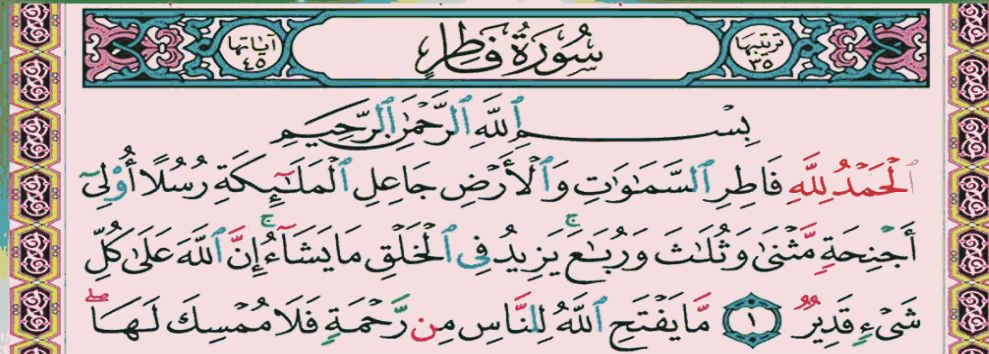 ترتيبها ٣٥ سُورَةُ فَاطِرٍ آيَاتها ٤٥
بِسْمِ ٱللَّهِ ٱلرَّحْمَٰنِ ٱلرَّحِيمِ
ٱلْحَمْدُ لِلَّهِ فَاطِرِ ٱلسَّمَٰوَٰتِ وَٱلْأَرْضِ جَاعِلِ ٱلْمَلَٰٓئِكَةِ رُسُلًا أُو۟لِىٓ
أَجْنِحَةٍ مَّثْنَىٰ وَثُلَٰثَ وَرُبَٰعَ ۚ يَزِيدُ فِى ٱلْخَلْقِ مَا يَشَآءُ ۚ إِنَّ ٱللَّهَ عَلَىٰ كُلِّ
شَىْءٍ قَدِيرٌ ١ مَّا يَفْتَحِ ٱللَّهُ لِلنَّاسِ مِن رَّحْمَةٍ فَلَا مُمْسِكَ لَهَا ۖ